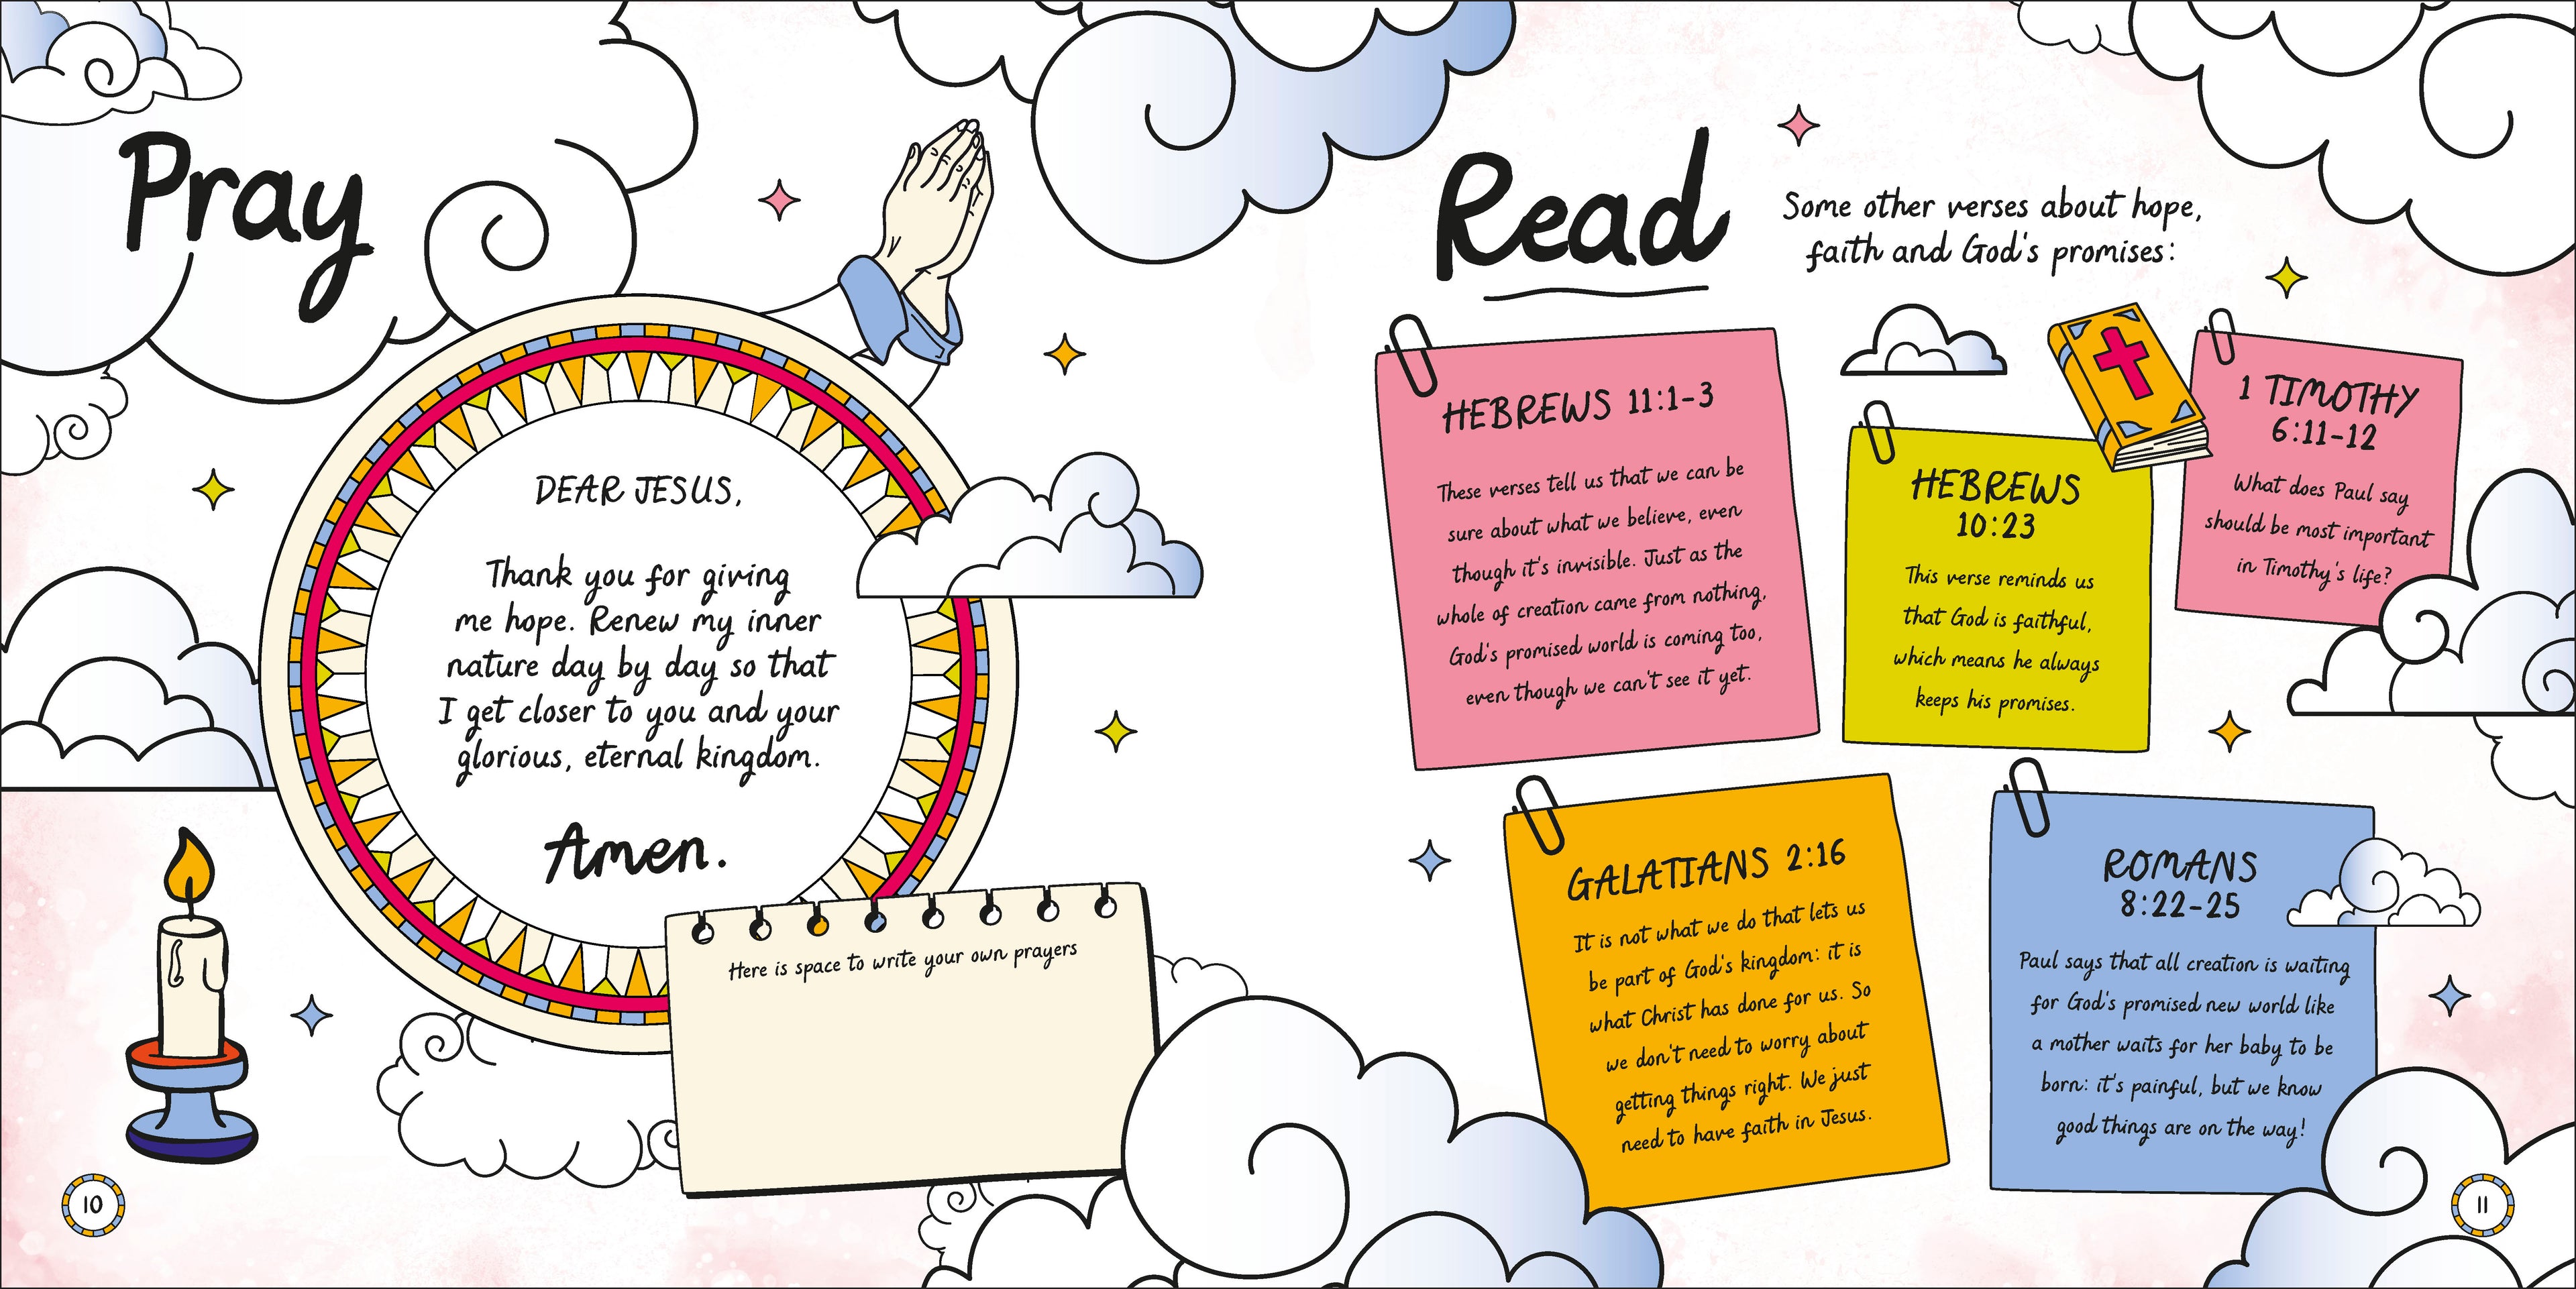 Pray
DEAR JESUS,
Thank you for giving
me hope. Renew my inner
nature day by day so that
I get closer to you and your
glorious, eternal kingdom.
Amen.
Here is space to write your own prayers
10
Read
Some other verses about hope,
faith and God's promises:
HEBREWS 11:1-3
These verses tell us that we can be
sure about what we believe, even
though it's invisible. Just as the
whole of creation came from nothing,
God's promised world is coming too,
even though we can't see it yet.
HEBREWS
10:23
This verse reminds us
that God is faithful,
which means he always
keeps his promises.
1 TIMOTHY
6:11-12
What does Paul say
should be most important
in Timothy's life?
GALATIANS 2:16
It is not what we do that lets us
be part of God's kingdom: it is
what Christ has done for us. So
we don't need to worry about
getting things right. We just
need to have faith in Jesus.
ROMANS
8:22-25
Paul says that all creation is waiting
for God's promised new world like
a mother waits for her baby to be
born: it's painful, but we know
good things are on the way!
11